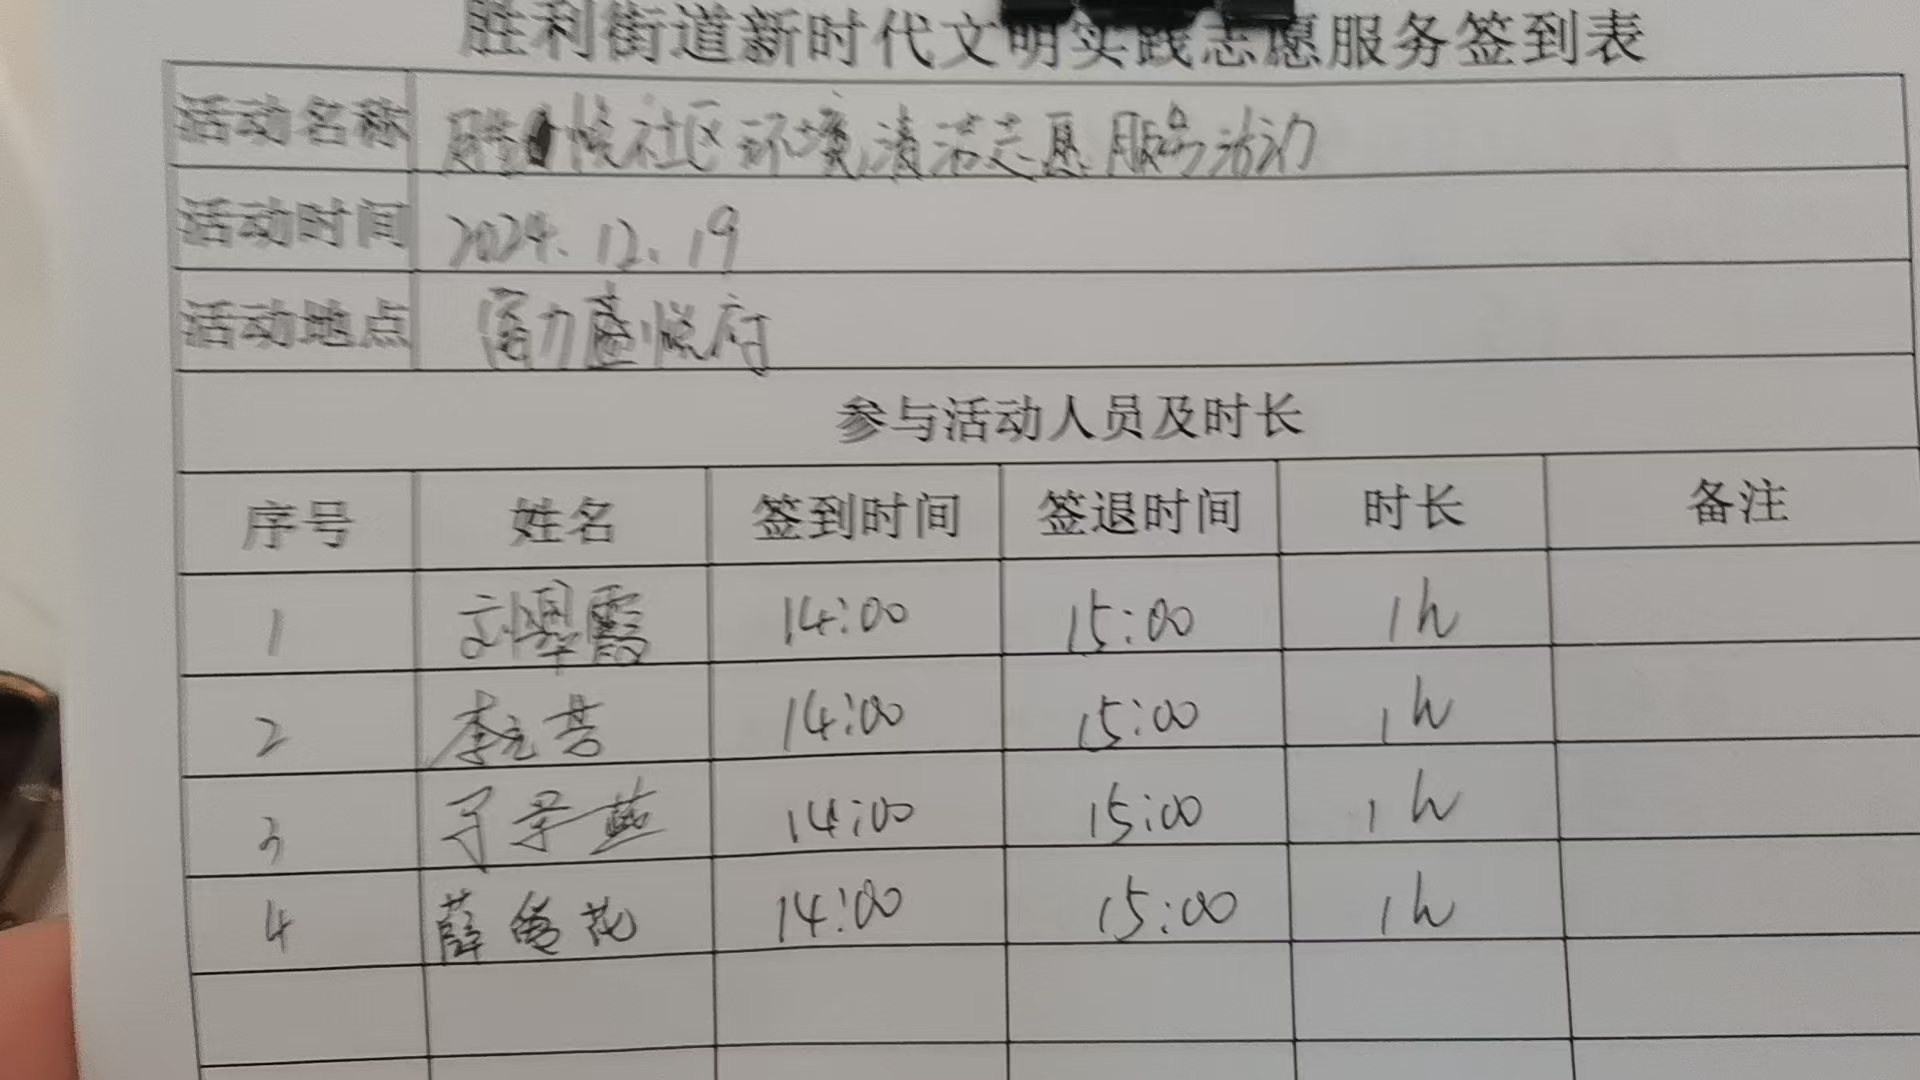 胜利街道新时代文明实践志愿服务签到表
活动名称 社区环境清洁志愿服务活动
活动时间 2024.12.19
活动地点 富力盛悦府
参与活动人员及时长
序号 姓名 签到时间 签退时间 时长 备注
1 刘翠霞 14:00 15:00 1h
2 李元芳 14:00 15:00 1h
3 14:00 15:00 1h
4 薛雪花 14:00 15:00 1h